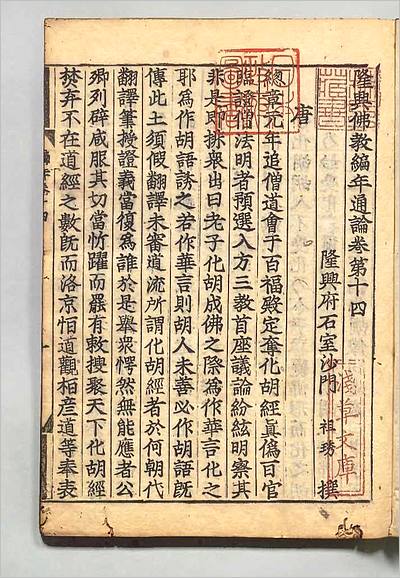 隆興佛教編年通論卷第十四
隆興府石室沙門 祖琇 撰
唐
總章元年追僧道會于百福殿定奪化胡經眞僞百官
臨證僧法明者預選入方三教首座議論紛紜明察其
非是即排衆出曰老子化胡成佛之際爲作華言化之
耶爲作胡語誘之若作華言則胡人未善必作胡語旣
傳此土須假翻譯未審道流所謂化胡經者於何朝代
翻譯筆授證義當復爲誰於是舉衆愕然無能應者公
卿列辟咸服其切當忻躍而罷有敕搜聚天下化胡經
焚弃不在道經之數旣而洛京恒道觀桓彦道等奉表
淺草文庫